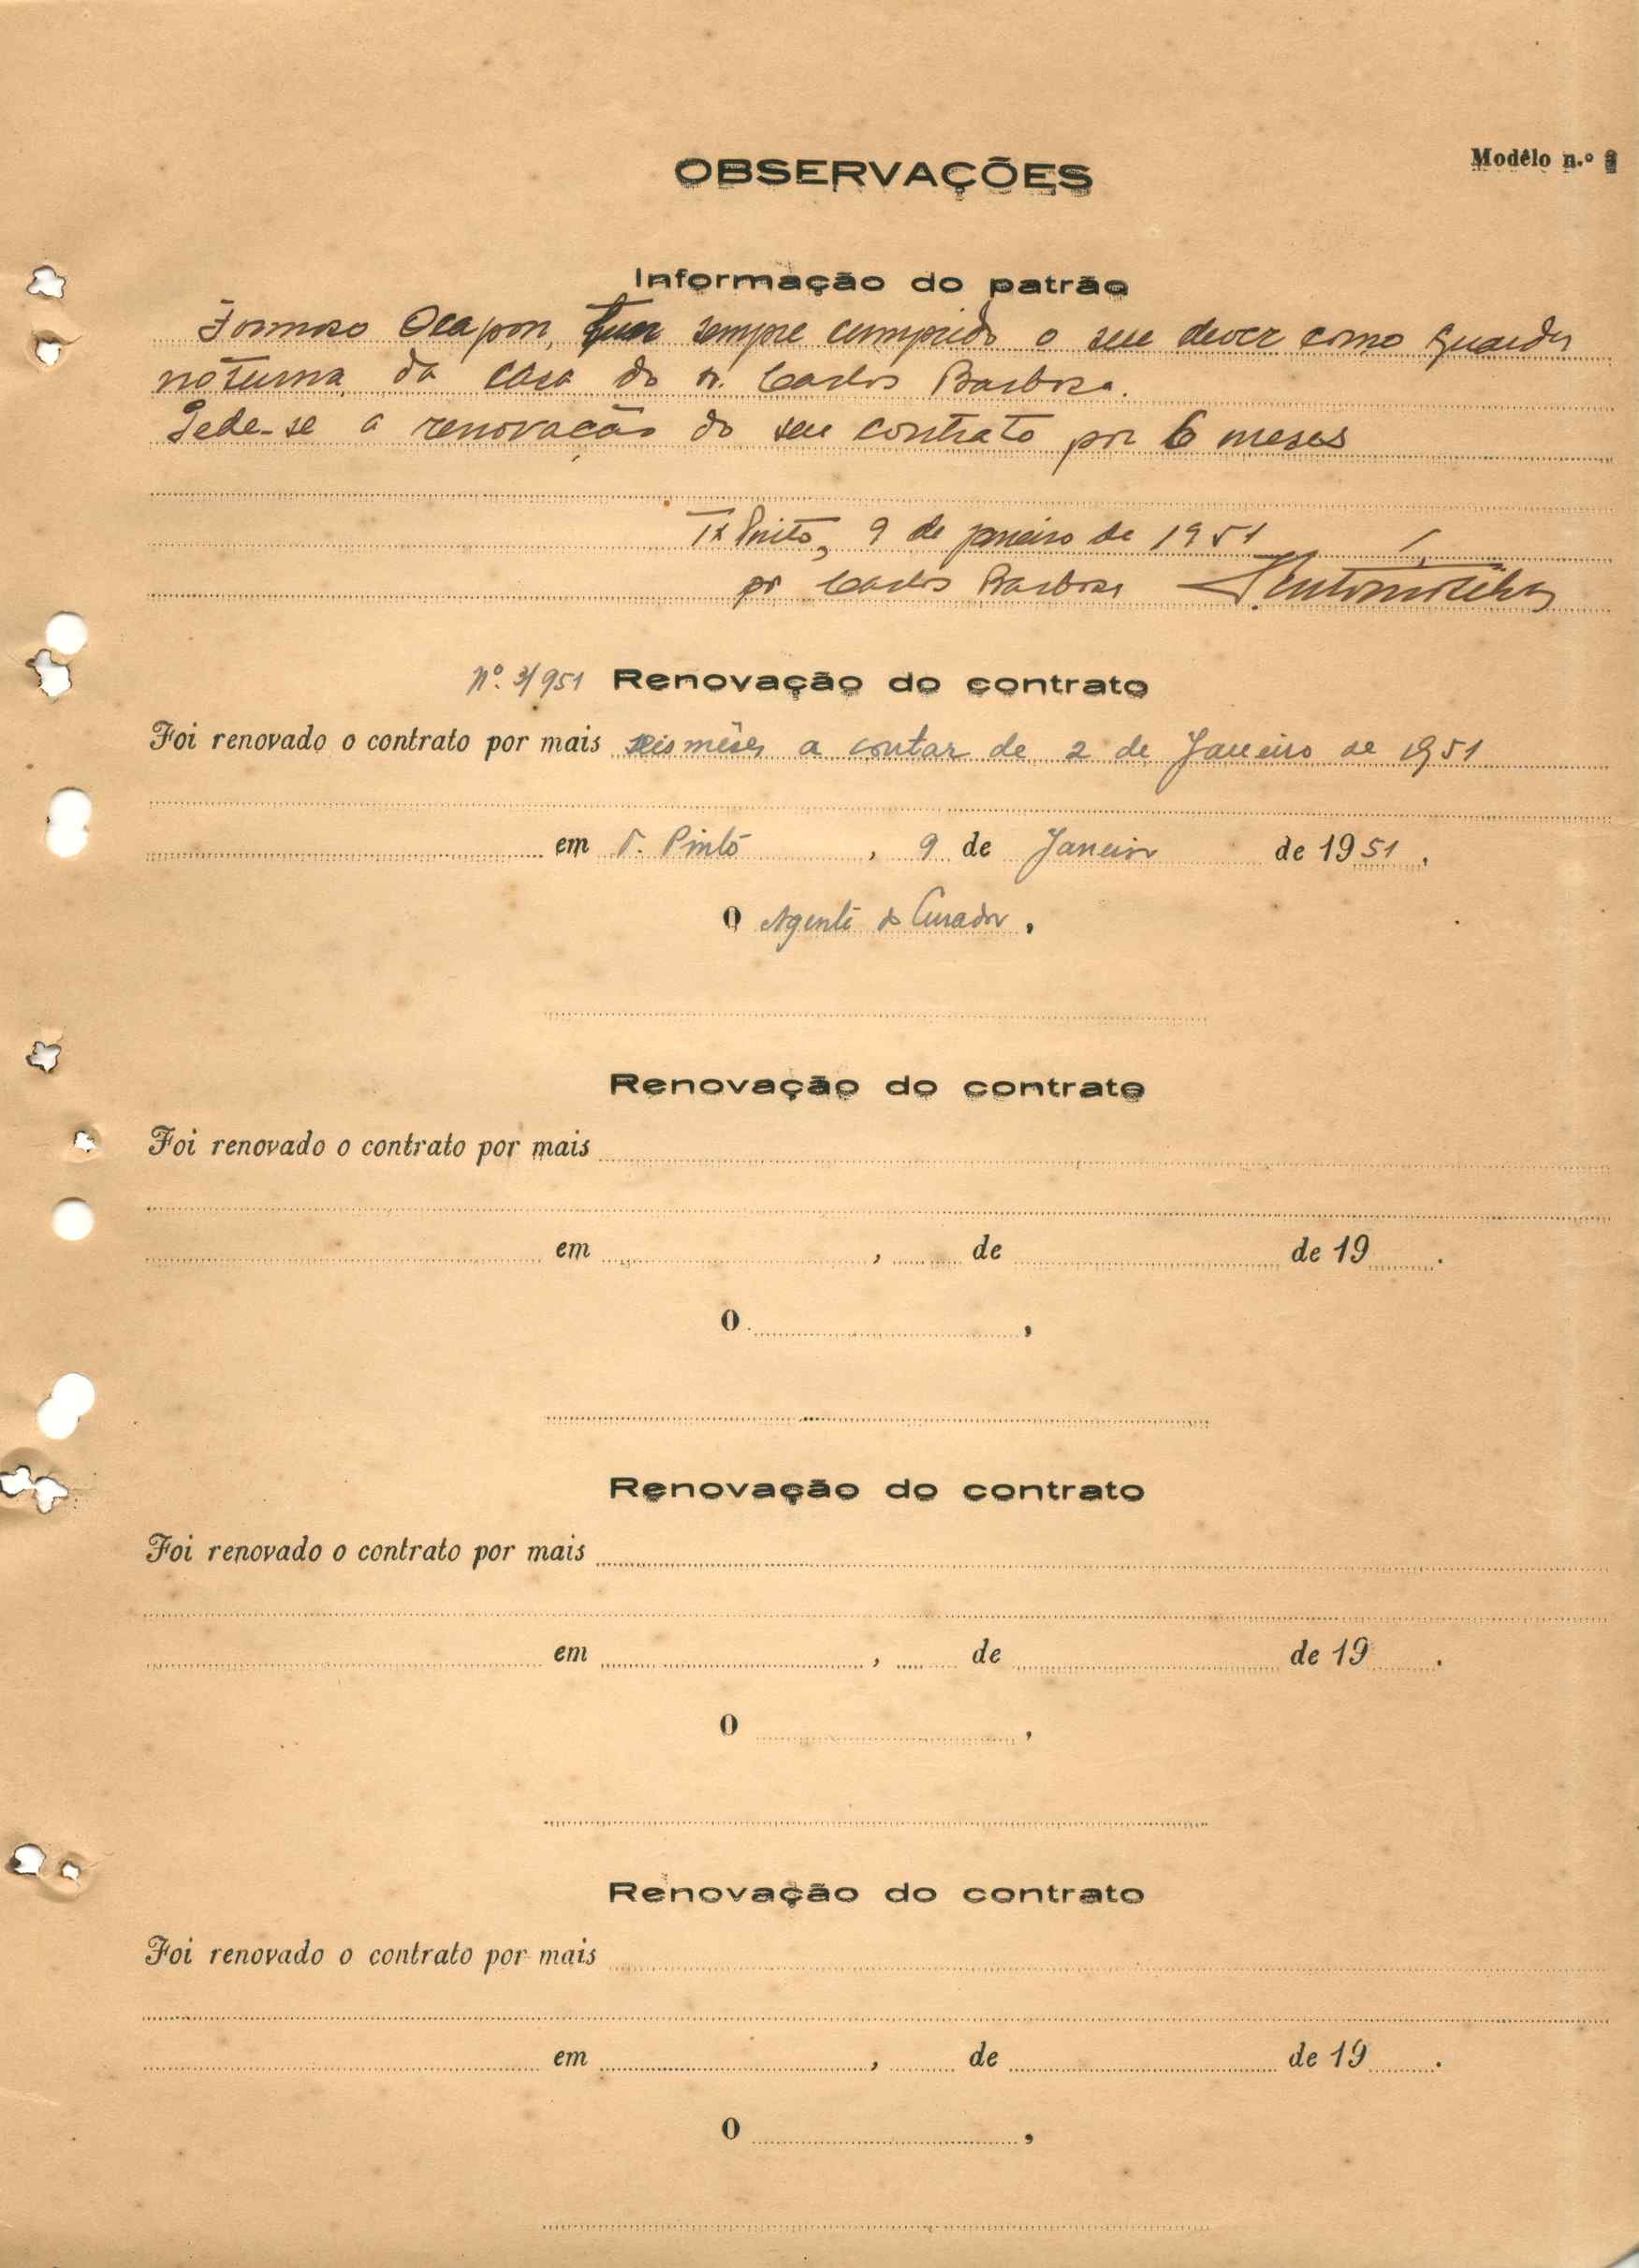 OBSERVAÇÕES
Modêlo n.º
Informação do patrão
Formoso Ocapon, tem sempre cumprido o seu dever como guarda
noturna da casa do Sr. Carlos Barbosa.
Pede-se a renovação do seu contrato por 6 meses
Tx Pinto, 9 de janeiro de 1951
pr Carlos Barbosa
Nº. 3/951 Renovação do contrato
Foi renovado o contrato por mais seis mêses a contar de 2 de Janeiro de 1951
em T. Pinto, 9 de Janeiro de 1951.
O Agente do Curador,
Renovação do contrato
Foi renovado o contrato por mais
em , de de 19 .
O ,
Renovação do contrato
Foi renovado o contrato por mais
em , de de 19 .
O ,
Renovação do contrato
Foi renovado o contrato por mais
em , de de 19 .
O ,